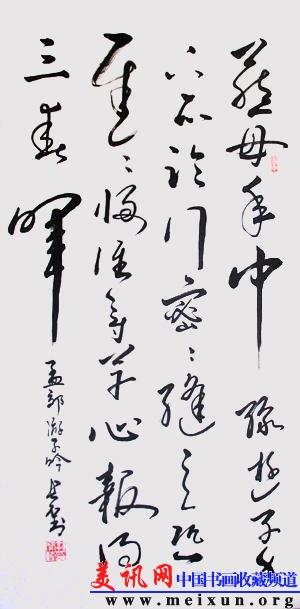 慈母手中線遊子身
上衣臨行密〻縫意恐
遲〻歸誰言寸草心報得
三春暉
孟郊游子吟
美讯网 中国书画收藏频道
www.meixun.org